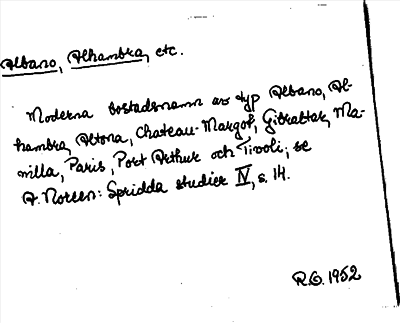 Albano, Alhambra, etc.
Moderna bostadsnamn av typ Albano, Al-
hambra, Altona, Chateau-Margot, Gibraltar, Ma-
nilla, Paris, Port Arthur och Tivoli; se
A. Noreen: Spridda studier IV, s. 14.
R.O. 1952